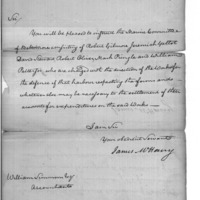 Sir,
You will be pleased to inform the Marine Committee
of Baltimore consisting of Robert Gilmor Jeremiah Yellott
David Stewart Robert Oliver Mark Pringle and
Prestman, who are charged with the direction of the Works for
the defence of that harbour respecting the forms and
whatever else may be necessary to the settlement of their
accounts for expenditures on the said Works.
I am Sir
Your Obedient Servant
James McHenry
William Simmons Esqr
Accountant